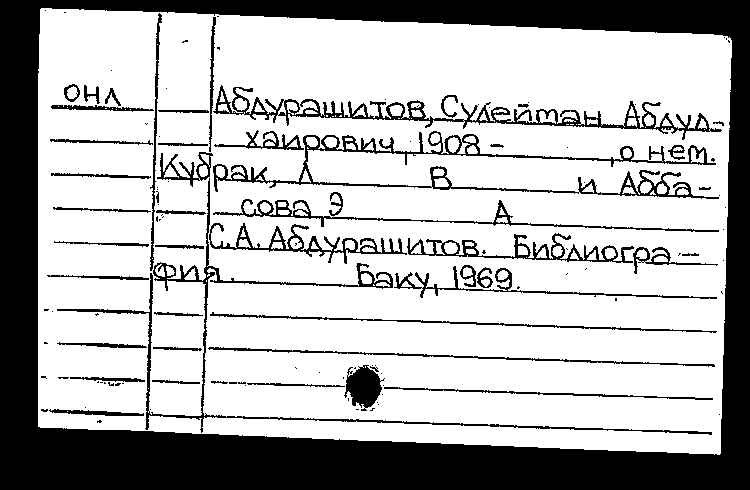 ОНЛ
Абдурашитов, Сулейман Абдул-
хаирович, 1908- , о нем.
Кубрак, Л В и Абба-
сова, Э А
С.А. Абдурашитов. Библиогра-
фия. Баку, 1969.